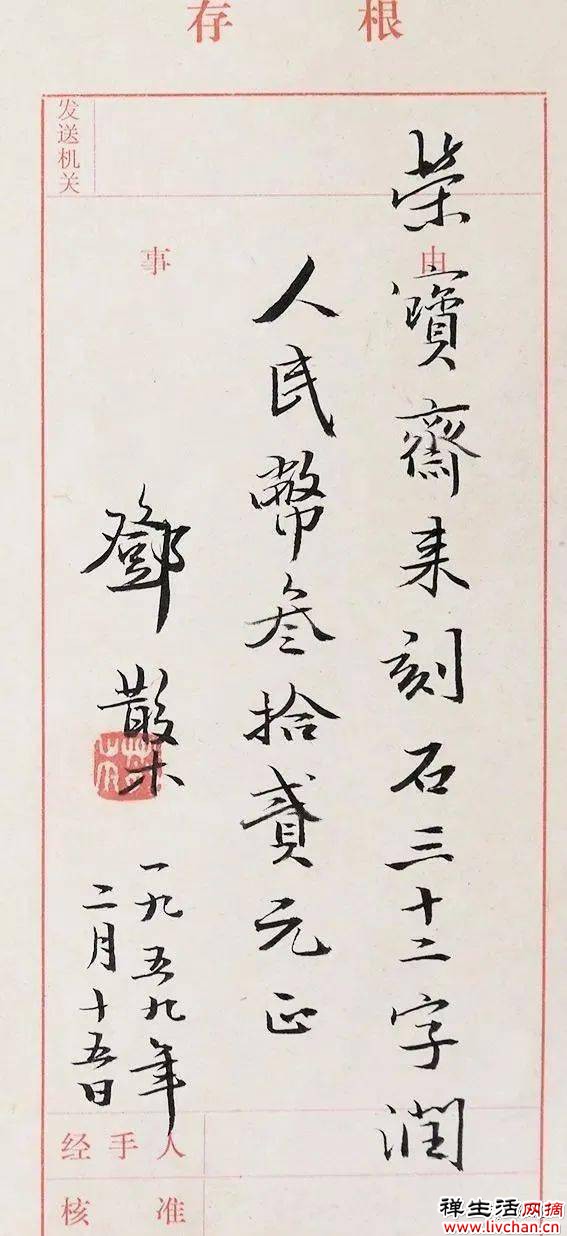 存根
发送机关
事由
荣寳齋来刻石三十二字潤
人民幣叁拾貳元正
鄧散木
一九五九年
二月十五日
经手人
核准
禅生活网摘
www.livchan.cn